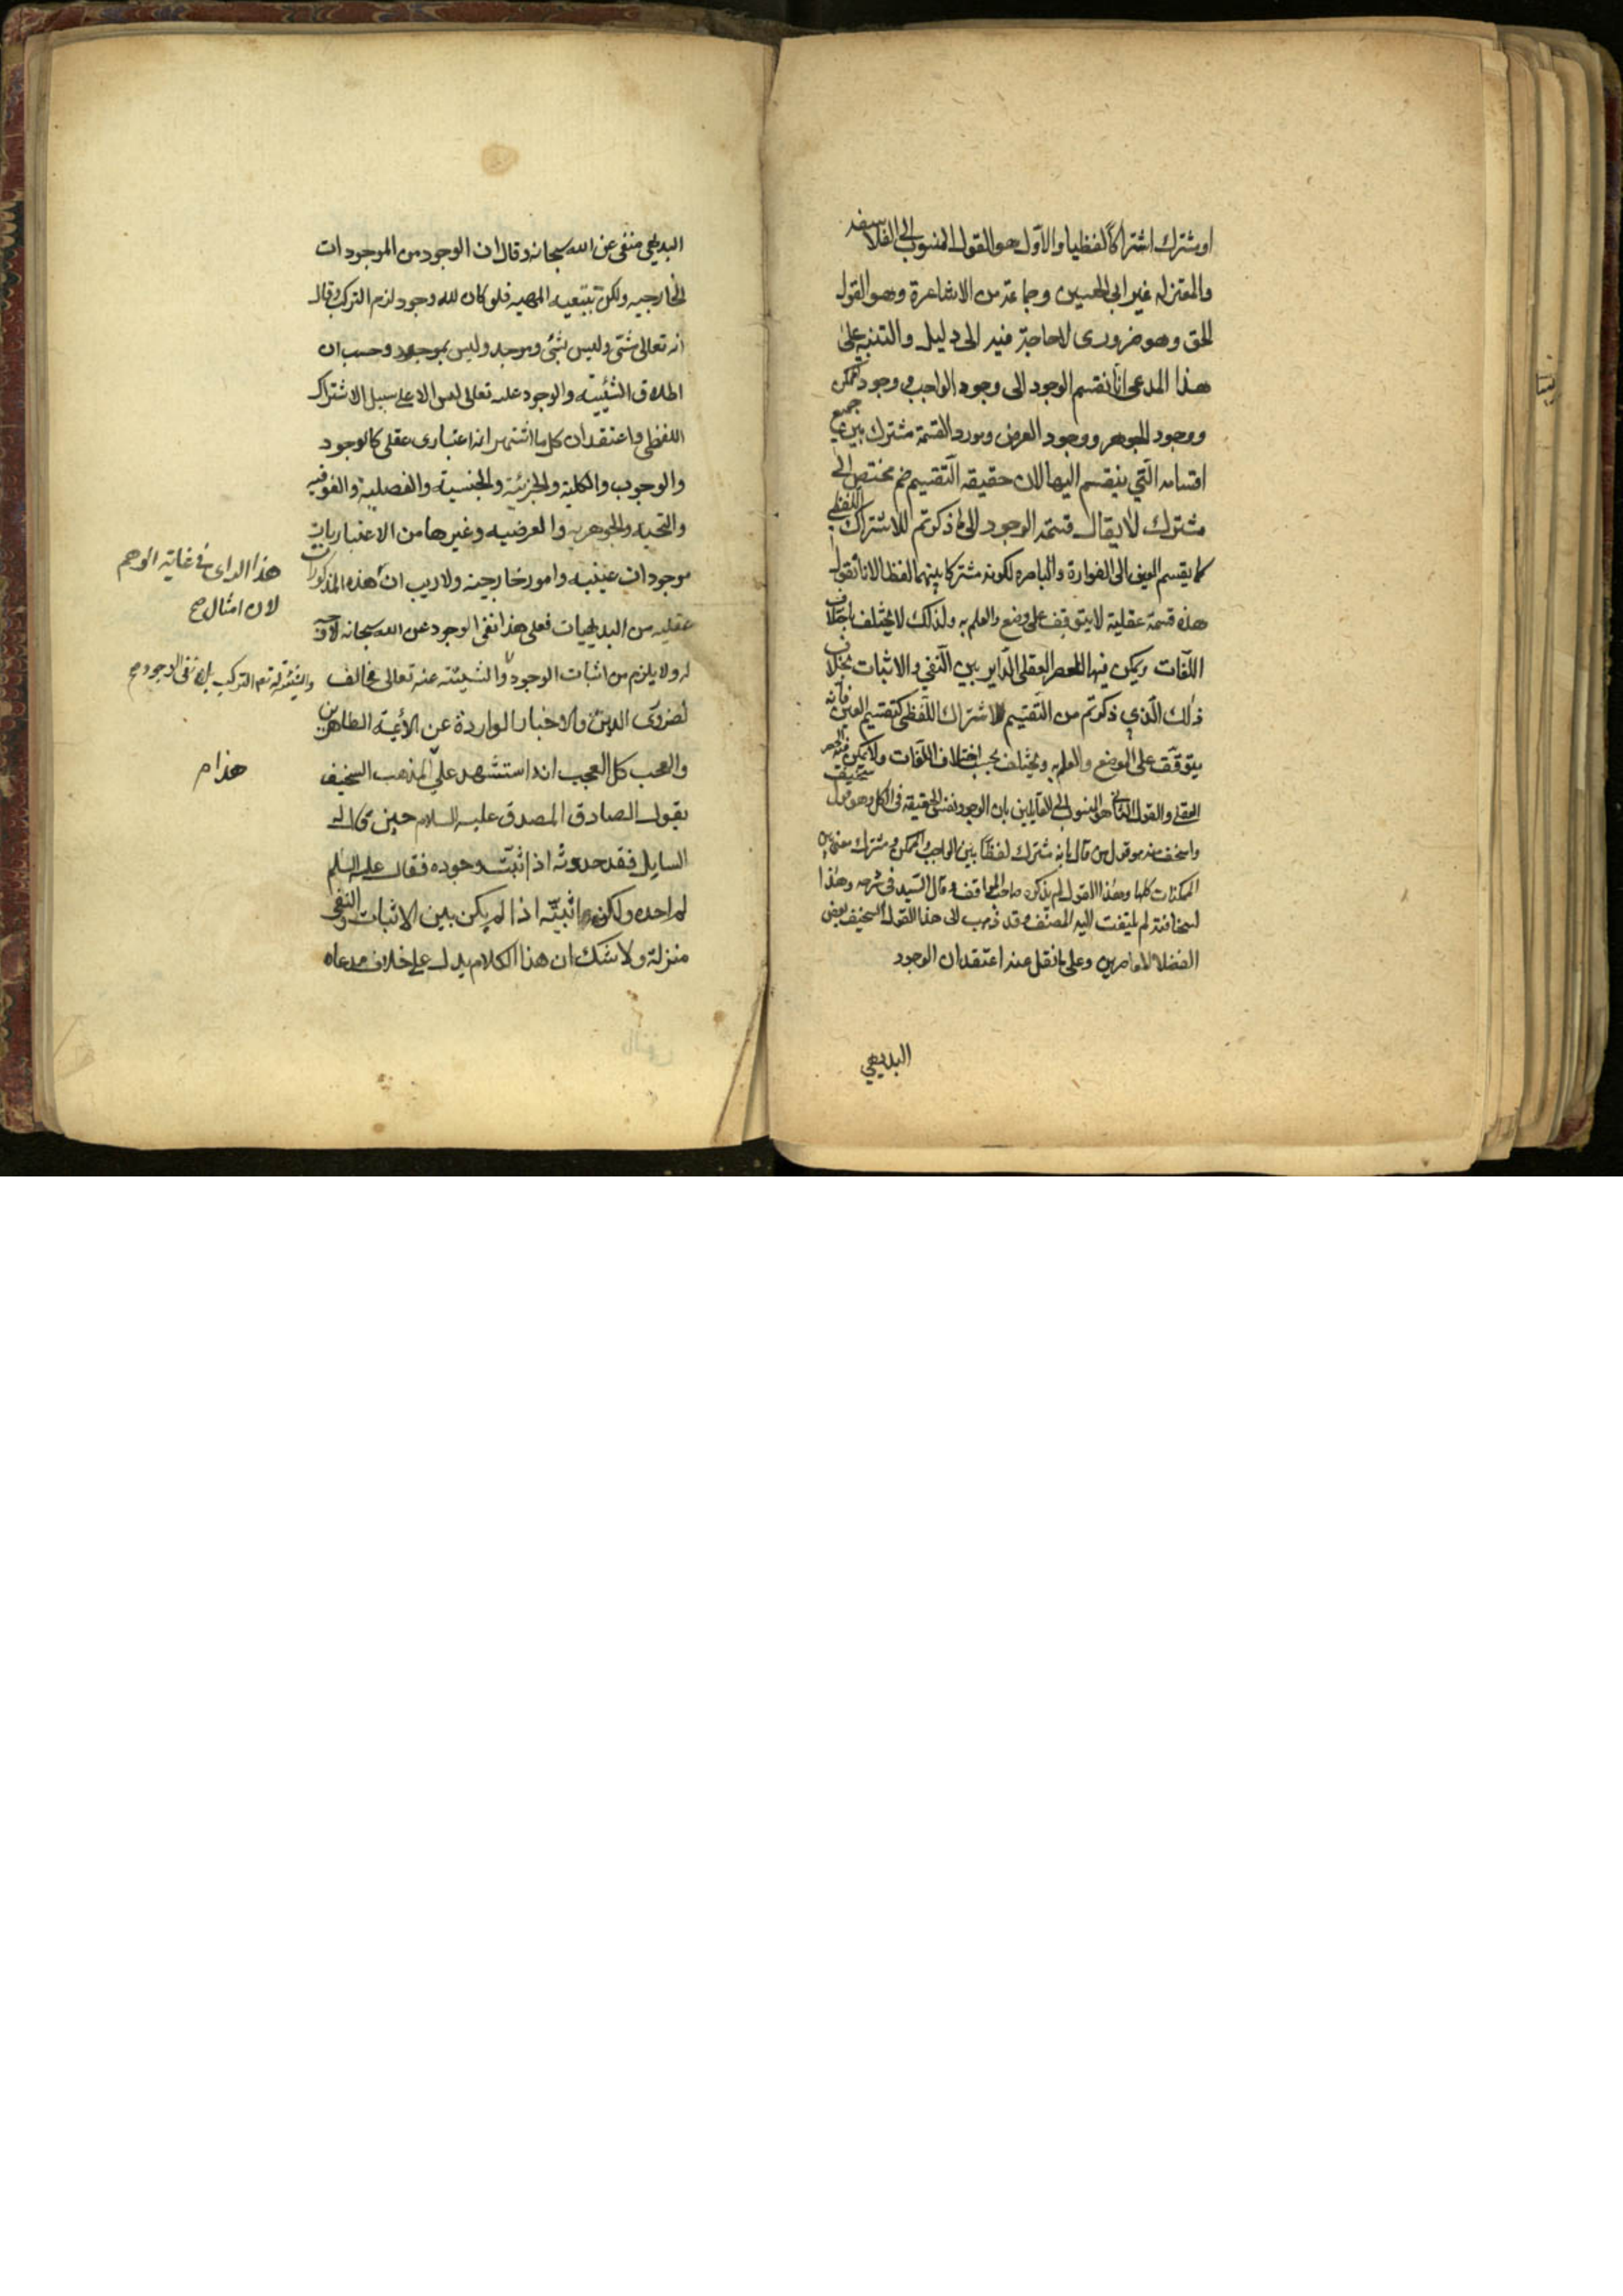 او مشترك اشتراكا لفظيا والاول هو القول المنسوب الى الفلاسفه
والمعتزله غير ابى الحسين وجماعة من الاشاعرة وهو القول
الحق وهو ضرورى لا حاجة فيه الى دليل والتنبيه على
هذا المدعى انا نقسم الوجود الى وجود الواجب و وجود الممكن
ووجود الجوهر ووجود العرض ومورد القسمة مشترك بين جميع
اقسامه الّتي ينقسم اليها لان حقيقه التّقسيم ضم مختص الى
مشترك لا يقال قسمة الوجود الى ما ذكرتم للاشتراك اللفظى
كما يقسم العين الى الفوارة والباصره لكونه مشتركا بينهما لفظا لانا نقول
هذه قسمة عقلية لا يتوقف على وضع والعلم به ولذلك لا يختلف باختلاف
اللّغات ويمكن فيها الحصر العقلى الدّاير بين النّفي والاثبات بخلاف
ذلك الّذي ذكرتم من التّقسيم للاشتراك اللّفظى كتقسيم العين فانه
يتوقّف على الوضع والعلم به ويختلف بحسب اختلاف اللّغات ولا يمكن فيه الحصر
العقلى والقول الثانى هو المنسوب الى القايلين بان الوجود نفس الحقيقه فى الكل وهو قول سخيف
واسخف منه هو قول من قال بانه مشترك لفظا بين الواجب والممكن ومشترك معنى بين
الممكنات كلها وهذا القول لم يذكره صاحب المواقف وقال السّيد فى شرحه وهذا
لسخافته لم يلتفت اليه المصنّف وقد ذهب الى هذا القول السخيف بعض
الفضلاء المعاصرين وعلى ما نقل عنه اعتقد ان الوجود
البديهي
البديهى منفى عن الله سبحانه وقال ان الوجود من الموجودات
الخارجيه ولكن بتبعيه المهيه فلو كان لله وجود لزم التركب وقال
انه تعالى شئ وليس بشئ وموجود وليس بموجود وحسب ان
اطلاق الشّيئيّه والوجود عليه تعالى ليس الا على سبيل الاشتراك
اللفظى واعتقد ان كل ما اشتهر انه اعتبارى عقلى كالوجود
والوجوب والكلية والجزئية والجنسية والفصلية والفوقيه
والتحتيه والجوهريه والعرضيه وغيرها من الاعتباريات
موجودات عينيه وامور خارجية ولا ريب ان هذه المذكورات
عقليه من البديهيات فعلى هذا نفى الوجود عن الله سبحانه
له ولا يلزم من اثبات الوجود والشيئيّة عنه تعالى مخالف
لضرورى الدين والاخبار الواردة عن الأيمة الطاهرين
والعجب كل العجب انه استشهد على المذهب السخيف
بقول الصادق المصدق عليه السلام حين قال
السايل فقد حدوته اذ اثبتّ وجوده فقال عليه السّلم
لم احده ولكن اثبتّه اذا لم يكن بين الاثبات والنّفى
منزلة ولا شك ان هذا الكلام يدل على خلاف مدعاه
هذا الراى فى غاية الوهم
لان امثال صح
هذا م